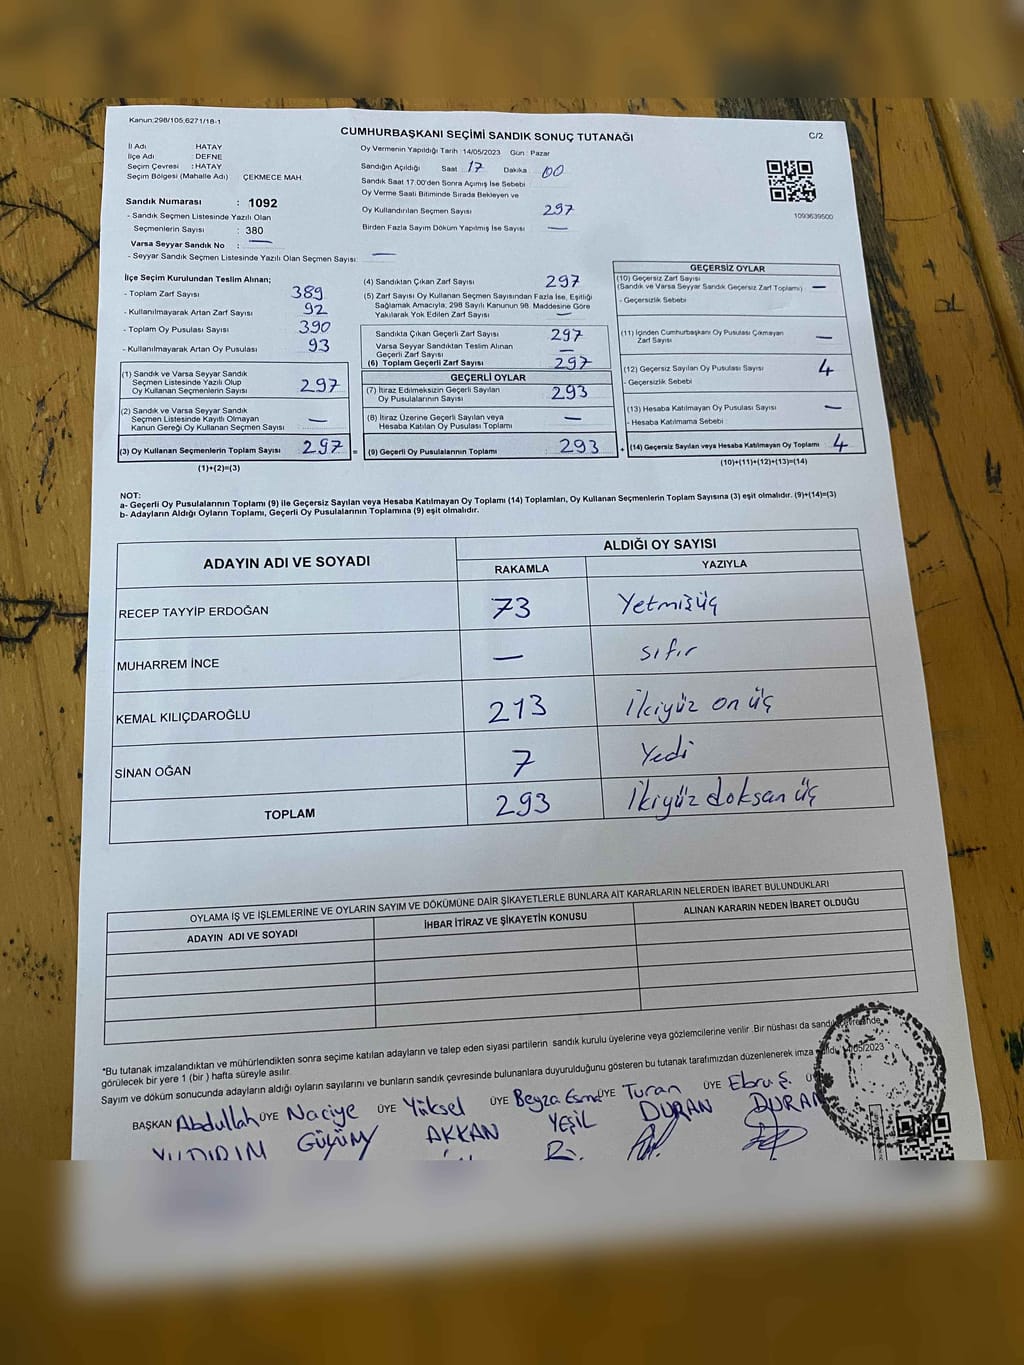 Kanun:298/105,6271/18-1
CUMHURBAŞKANI SEÇİMİ SANDIK SONUÇ TUTANAĞI
C/2
İl Adı : HATAY
İlçe Adı : DEFNE
Seçim Çevresi : HATAY
Seçim Bölgesi (Mahalle Adı) ÇEKMECE MAH.
Sandık Numarası : 1092
- Sandık Seçmen Listesinde Yazılı Olan
Seçmenlerin Sayısı : 380
Varsa Seyyar Sandık No : —
- Seyyar Sandık Seçmen Listesinde Yazılı Olan Seçmen Sayısı: —
Oy Vermenin Yapıldığı Tarih :14/05/2023 Gün : Pazar
Sandığın Açıldığı Saat 17 Dakika 00
Sandık Saat 17:00'den Sonra Açımış İse Sebebi
Oy Verme Saati Bitiminde Sırada Bekleyen ve
Oy Kullandırılan Seçmen Sayısı 297
Birden Fazla Sayım Döküm Yapılmış İse Sayısı —
1093639500
İlçe Seçim Kurulundan Teslim Alınan;
- Toplam Zarf Sayısı 389
- Kullanılmayarak Artan Zarf Sayısı 92
- Toplam Oy Pusulası Sayısı 390
- Kullanılmayarak Artan Oy Pusulası 93
(1) Sandık ve Varsa Seyyar Sandık
Seçmen Listesinde Yazılı Olup
Oy Kullanan Seçmenlerin Sayısı 297
(2) Sandık ve Varsa Seyyar Sandık
Seçmen Listesinde Kayıtlı Olmayan
Kanun Gereği Oy Kullanan Seçmen Sayısı —
(3) Oy Kullanan Seçmenlerin Toplam Sayısı 297 =
(1)+(2)=(3)
(4) Sandıktan Çıkan Zarf Sayısı 297
(5) Zarf Sayısı Oy Kullanan Seçmen Sayısından Fazla İse, Eşitliği
Sağlamak Amacıyla; 298 Sayılı Kanunun 98. Maddesine Göre
Yakılarak Yok Edilen Zarf Sayısı —
Sandıkta Çıkan Geçerli Zarf Sayısı 297
Varsa Seyyar Sandıktan Teslim Alınan
Geçerli Zarf Sayısı —
(6) Toplam Geçerli Zarf Sayısı 297
GEÇERLİ OYLAR
(7) İtiraz Edilmeksizin Geçerli Sayılan
Oy Pusulalarının Sayısı 293
(8) İtiraz Üzerine Geçerli Sayılan veya
Hesaba Katılan Oy Pusulası Toplamı —
(9) Geçerli Oy Pusulalarının Toplamı 293 +
GEÇERSİZ OYLAR
(10) Geçersiz Zarf Sayısı
(Sandık ve Varsa Seyyar Sandık Geçersiz Zarf Toplamı) —
- Geçersizlik Sebebi
(11) İçinden Cumhurbaşkanı Oy Pusulası Çıkmayan
Zarf Sayısı —
(12) Geçersiz Sayılan Oy Pusulası Sayısı 4
- Geçersizlik Sebebi
(13) Hesaba Katılmayan Oy Pusulası Sayısı —
- Hesaba Katılmama Sebebi
(14) Geçersiz Sayılan veya Hesaba Katılmayan Oy Toplamı 4
(10)+(11)+(12)+(13)=(14)
NOT:
a- Geçerli Oy Pusulalarının Toplamı (9) ile Geçersiz Sayılan veya Hesaba Katılmayan Oy Toplamı (14) Toplamları, Oy Kullanan Seçmenlerin Toplam Sayısına (3) eşit olmalıdır. (9)+(14)=(3)
b- Adayların Aldığı Oyların Toplamı, Geçerli Oy Pusulalarının Toplamına (9) eşit olmalıdır.
ADAYIN ADI VE SOYADI
ALDIĞI OY SAYISI
RAKAMLA YAZIYLA
RECEP TAYYİP ERDOĞAN 73 Yetmişüç
MUHARREM İNCE — sıfır
KEMAL KILIÇDAROĞLU 213 İkiyüz on üç
SİNAN OĞAN 7 Yedi
TOPLAM 293 İkiyüz doksan üç
OYLAMA İŞ VE İŞLEMLERİNE VE OYLARIN SAYIM VE DÖKÜMÜNE DAİR ŞİKAYETLERLE BUNLARA AİT KARARLARIN NELERDEN İBARET BULUNDUKLARI
ADAYIN ADI VE SOYADI İHBAR İTİRAZ VE ŞİKAYETİN KONUSU ALINAN KARARIN NEDEN İBARET OLDUĞU
*Bu tutanak imzalandıktan ve mühürlendikten sonra seçime katılan adayların ve talep eden siyasi partilerin sandık kurulu üyelerine veya gözlemcilerine verilir .Bir nüshası da sandık çevresinde
görülecek bir yere 1 (bir ) hafta süreyle asılır.
Sayım ve döküm sonucunda adayların aldığı oyların sayılarını ve bunların sandık çevresinde bulunanlara duyurulduğunu gösteren bu tutanak tarafımızdan düzenlenerek imza
BAŞKAN Abdullah ÜYE Naciye ÜYE Yüksel ÜYE Beyza Esma ÜYE Turan ÜYE Ebru Ş.
YILDIRIM AKKAN YEŞİL DURAN DURAN